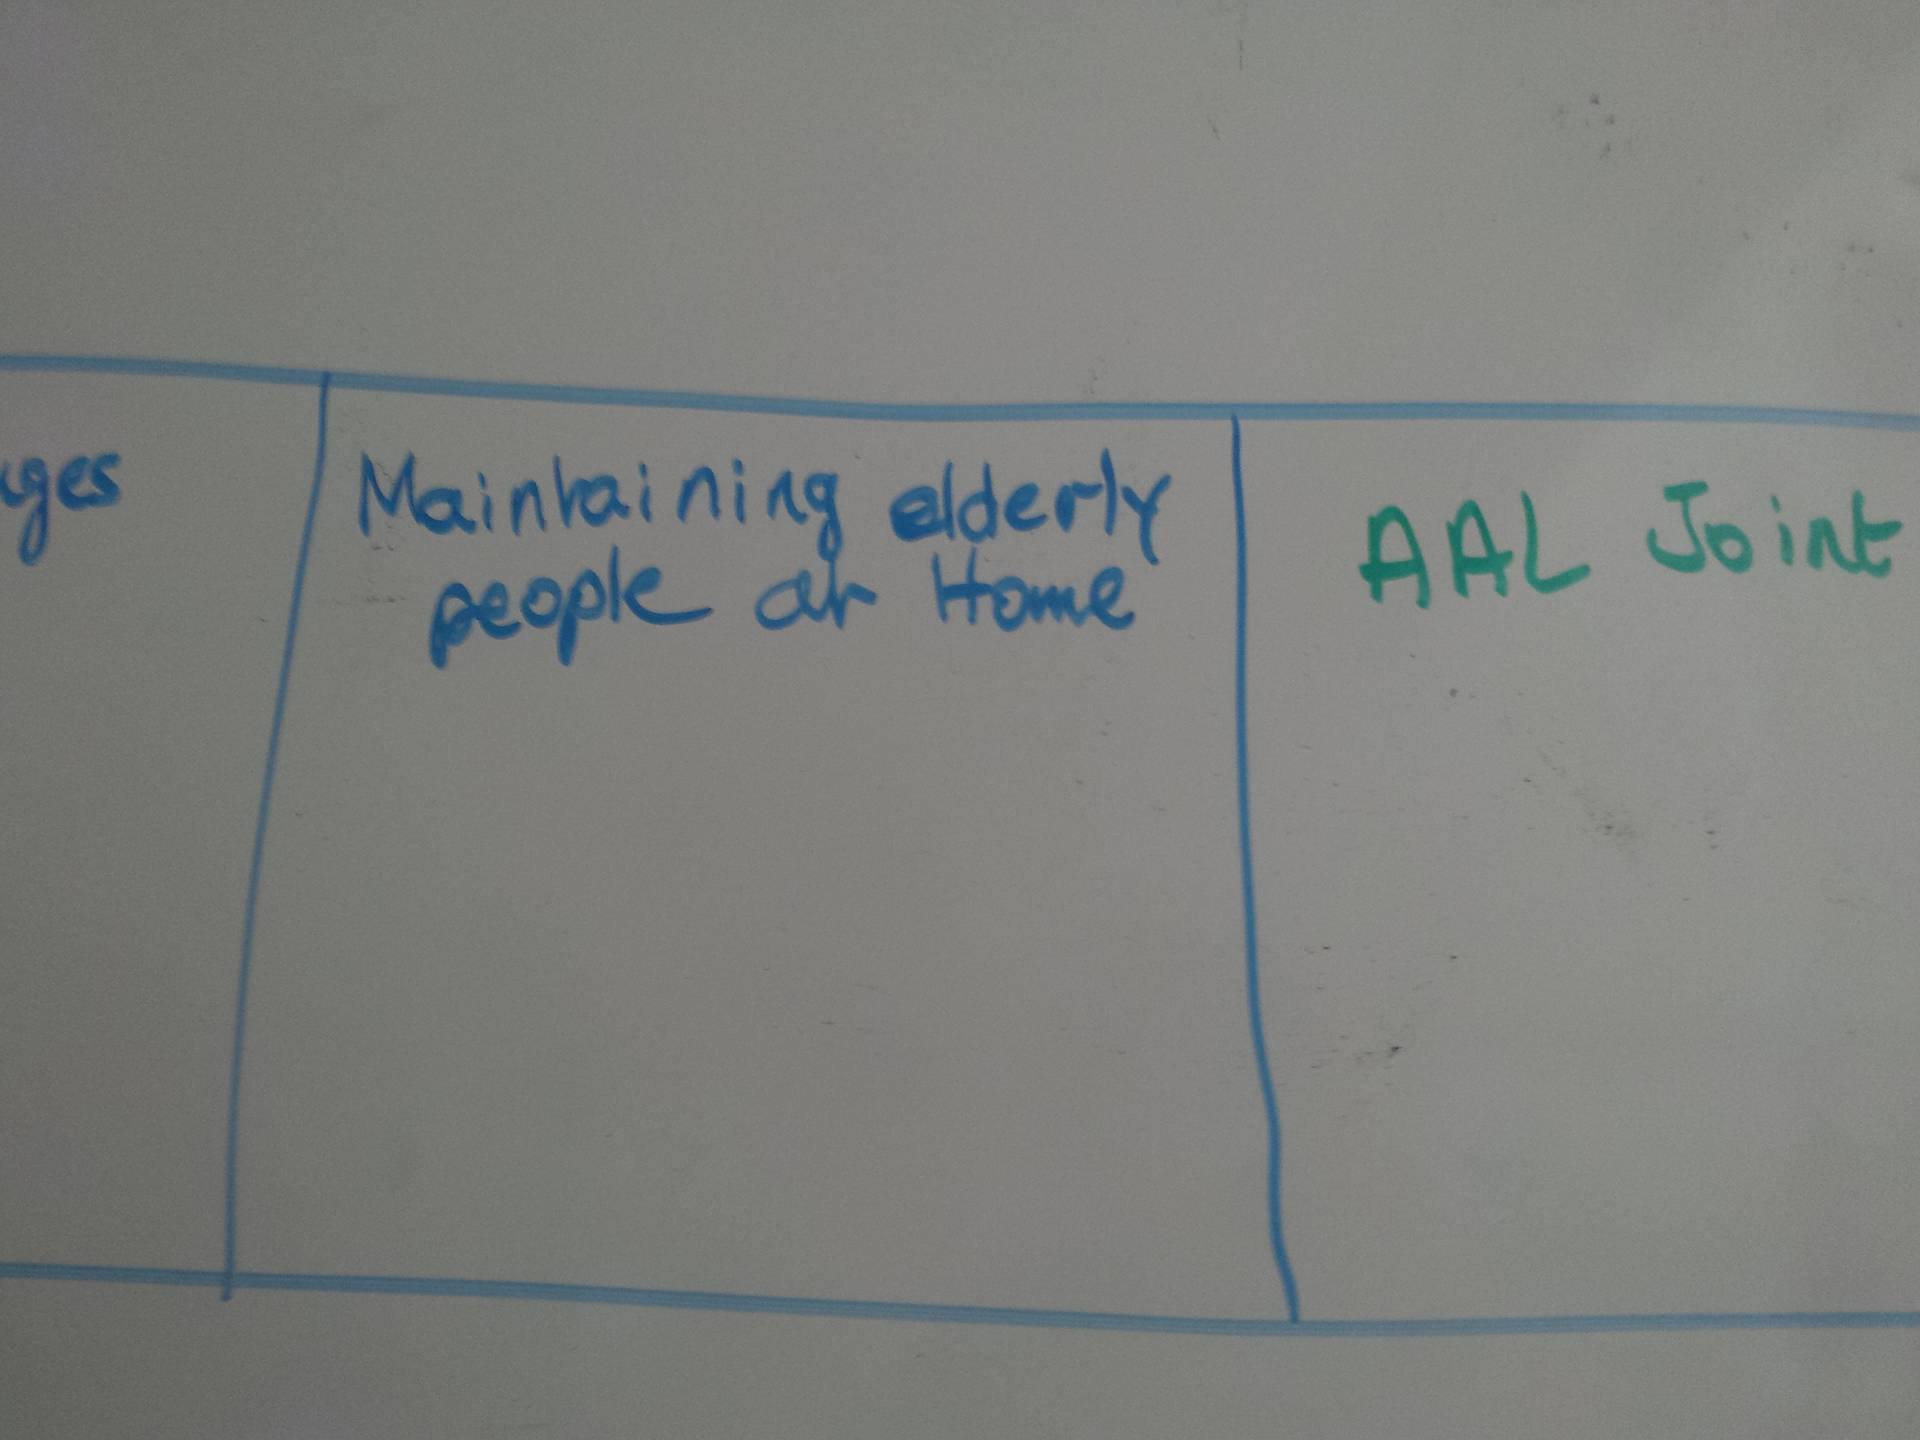 Maintaining elderly
people at Home
AAL Joint